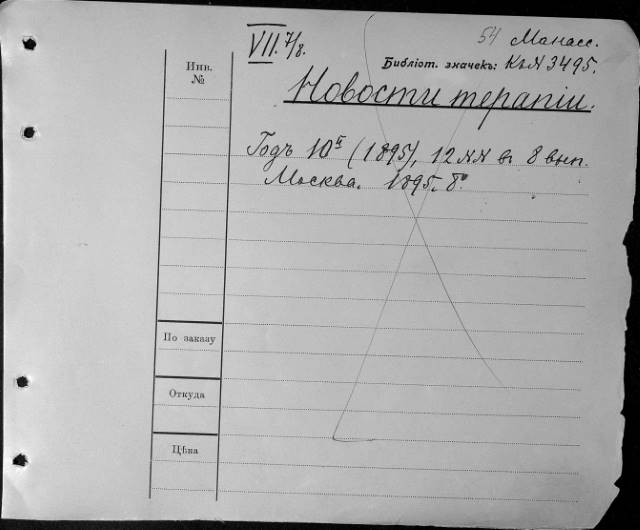 54 Манасс.
VII. 7/8.
Инв.
№
Библіот. значекъ: К.н.А 3495.
Новости терапіи.
Годъ 10й (1895), 12 №№ въ 8 вып.
Москва. 1895. 8º
По заказу
Откуда
Цѣна